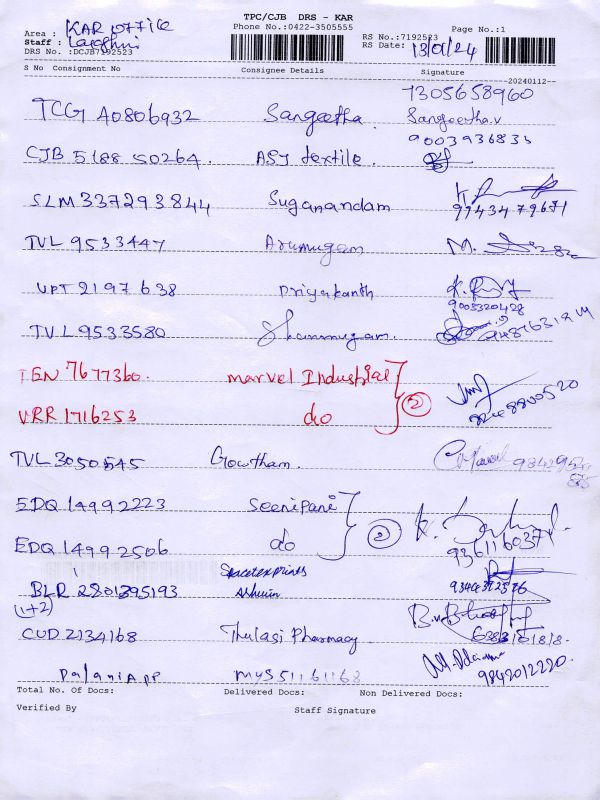 TPC/CJB DRS - KAR
Phone No.:0422-3505555
Page No.:1
Area : KAR office
Staff :
DRS No. :DCJB7192523
RS No.:7192523
RS Date: 13/01/24
S No Consignment No Consignee Details Signature
20240112
7305658960
TCG A0806932 Sangeetha. Sangeetha.v
9003936835
CJB 518850264. ASJ textile.
SLM 337293844 Suganandam
9943479671
TVL 9533447 Arumugam M.
UPT 2197638 Priyakanth
9005320428
TVL 9533580 Shanmugam.
TEN 7677360. Marvel Industrial
VRR 1716253 do 2
TVL 3050545 Gowtham.
EDQ 14992223 Seenipani
EDQ 14992506 do 2
BLR 2801395193 Ashwin
(1+2)
CUD 2134168 Thulasi Pharmacy
Palaniapp MYS51161168
9842012220.
Total No. Of Docs: Delivered Docs: Non Delivered Docs:
Verified By Staff Signature